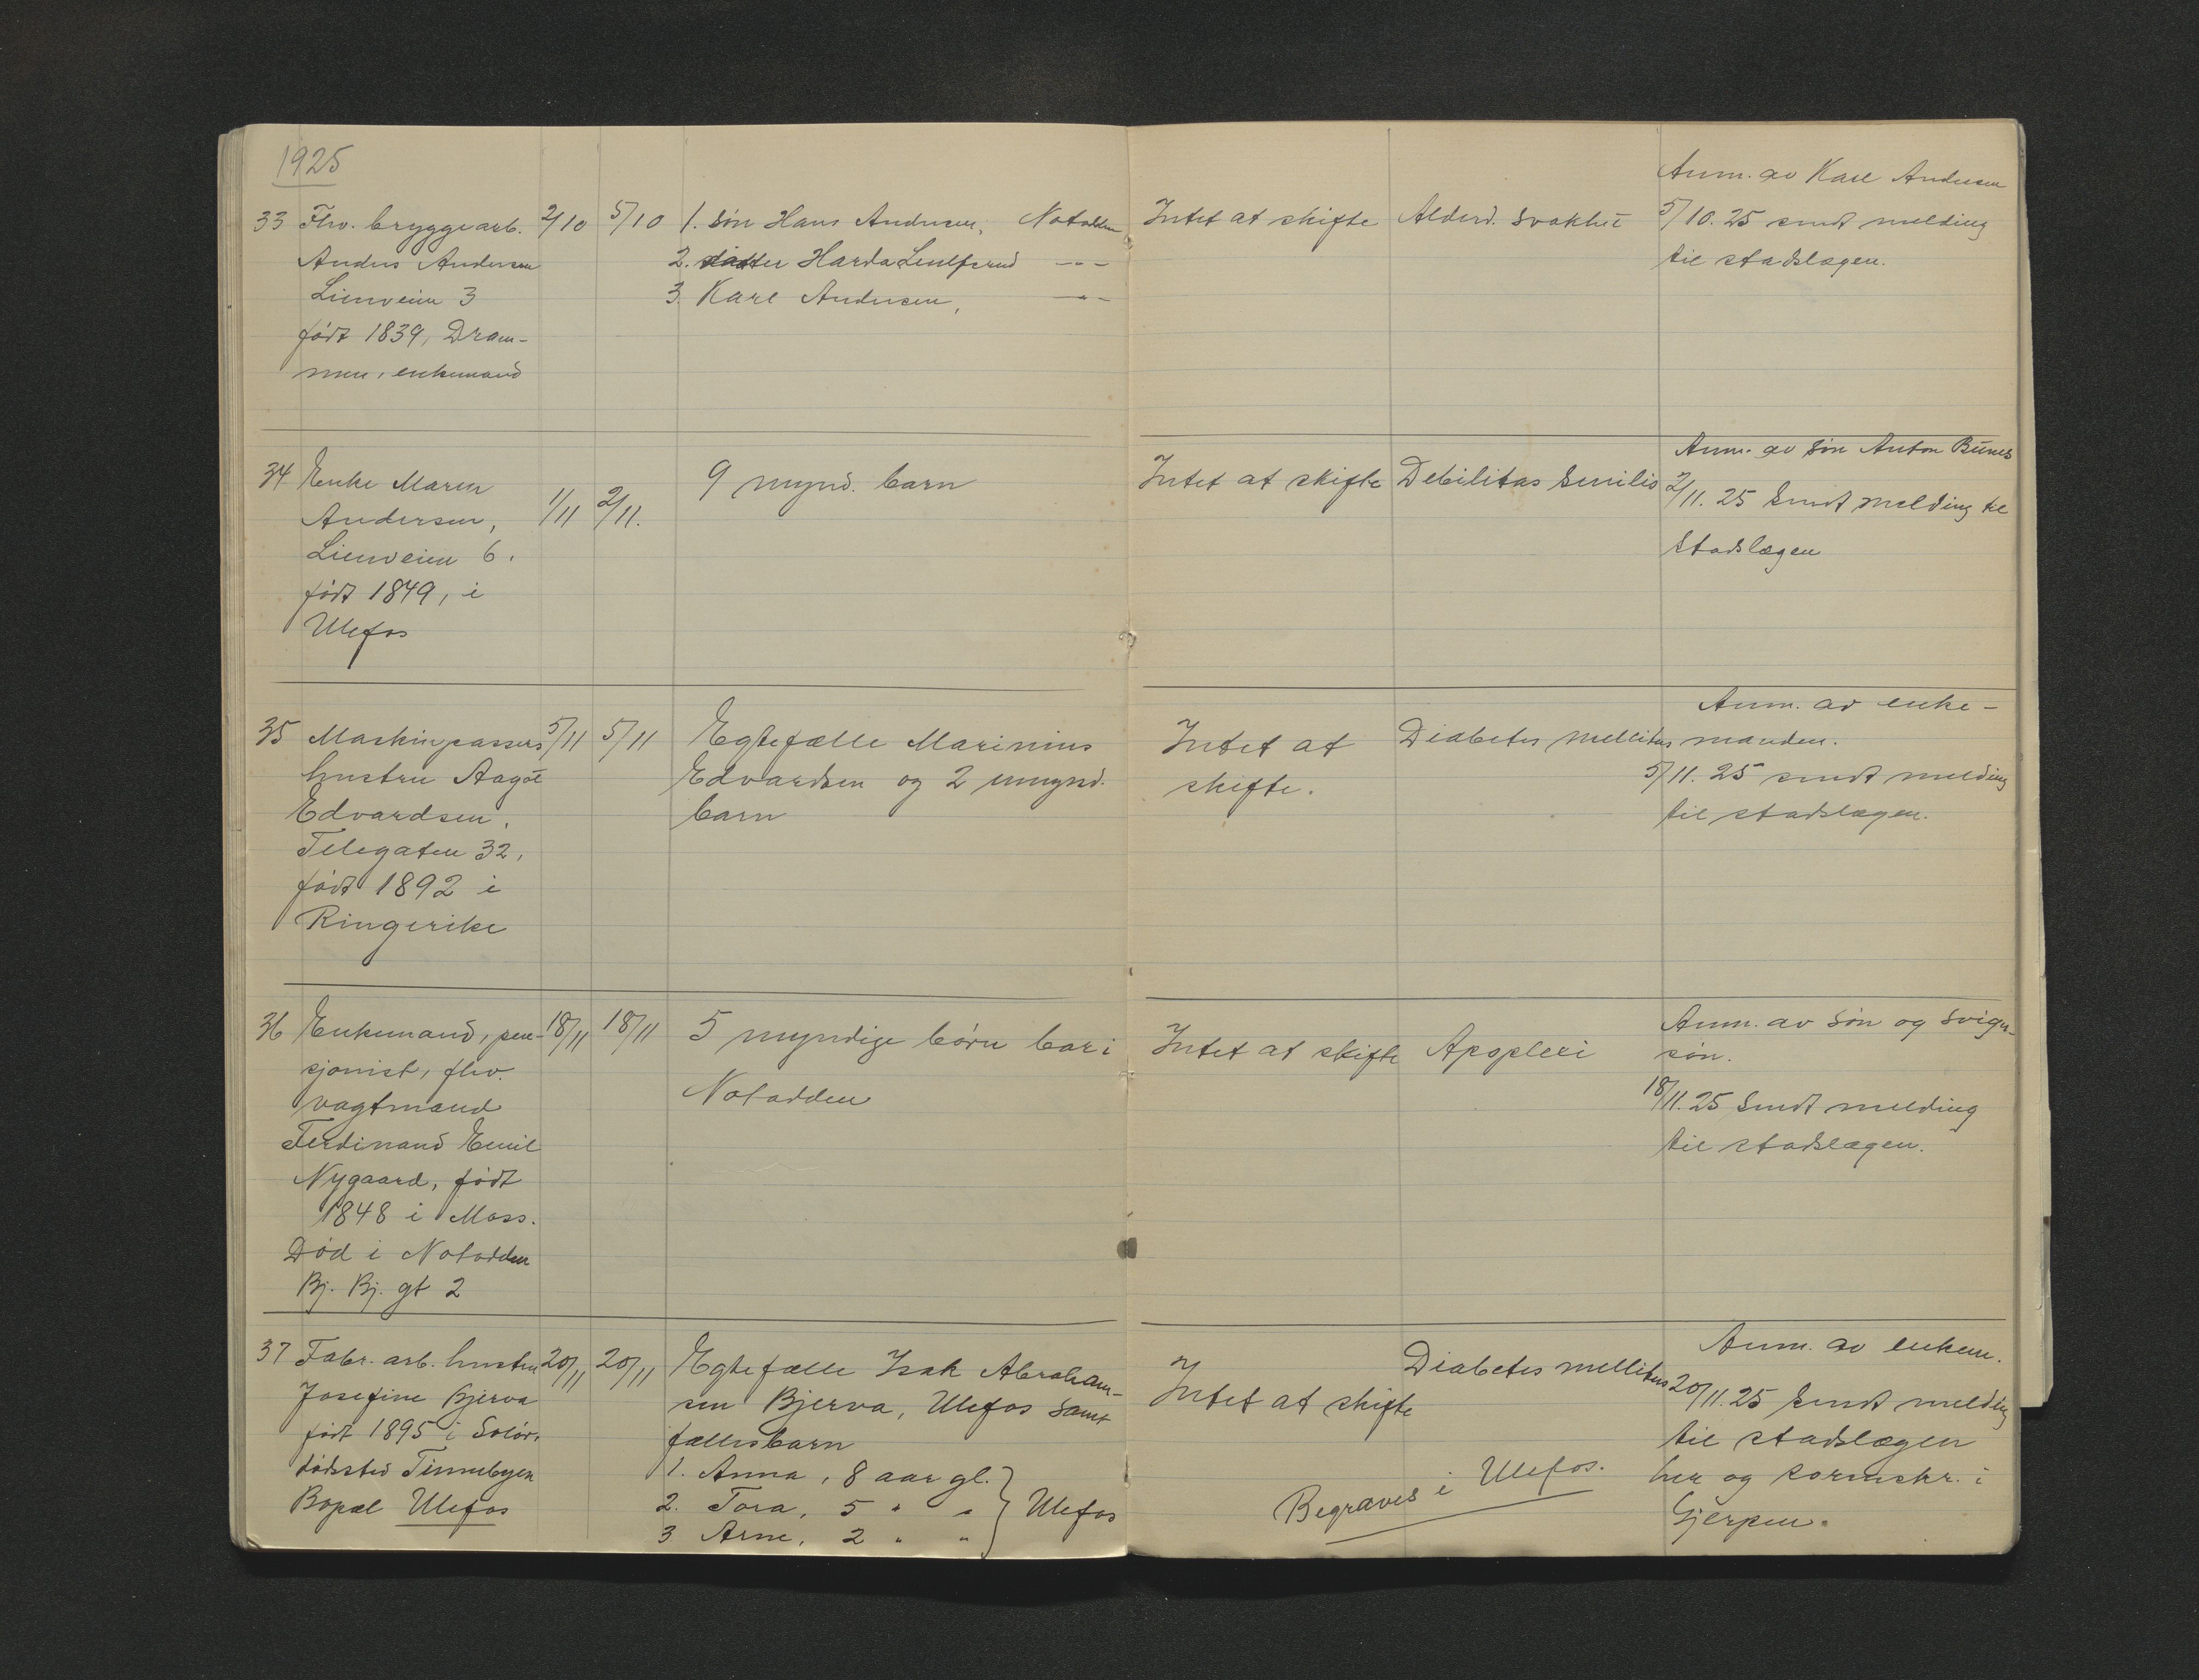 1925
33 Fhv. bryggearb. 2/10 5/10 1. Søn Hans Andersen, Notodden Intet at skifte Alderd. svakhet Anm. av Karl Andersen
Anders Andersen 2. datter Harda 5/10. 25 sendt melding
Lienveien 3 3. Karl Andersen, —"— til stadslægen.
født 1839, Dram-
men, enkemand
34 Enke Maren 1/11 2/11. 9 mynd. barn Intet at skifte Debilitas Senilis Anm. av søn Anton Bunes
Andersen, 2/11. 25 Sendt melding til
Lienveien 6. Stadslægen
født 1849, i
Ulefos
35 Maskinpassers 5/11 5/11 Egtefælle Marinius Intet at Diabetes mellitus Anm. av enke-
hustru Aagot Edvardsen og 2 umynd. skifte. manden.
Edvardsen, barn 5/11. 25 sendt melding
Telegaten 32, til stadslægen.
født 1892 i
Ringerike
36 Enkemand, pen- 18/11 18/11 5 myndige børn bor i Intet at skifte Apoplexi Anm. av søn og sviger-
sjonist, fhv. Notodden søn.
vagtmand 18/11. 25 Sendt melding
Ferdinand Emil til stadslægen.
Nygaard, født
1848 i Moss.
Død i Notodden
Bj. Bj. gt 2
37 Fabr. arb. hustru 20/11 20/11 Egtefælle Isak Abraham- Intet at skifte Diabetes mellitus Anm. av enkem.
Josefine Bjerva sen Bjerva, Ulefos samt 20/11. 25 Sendt melding
født 1895 i Solør, fællesbarn til stadslægen
dødssted Tinnebyen 1. Anna, 8 aar gl. her og sorenskr. i
Bopæl Ulefos 2. Tora, 5 " " Ulefos Begraves i Ulefos. Gjerpen.
3 Arne, 2 " "